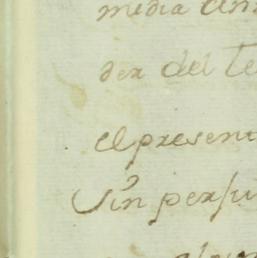 media an
der del te
el presen
Sin perju